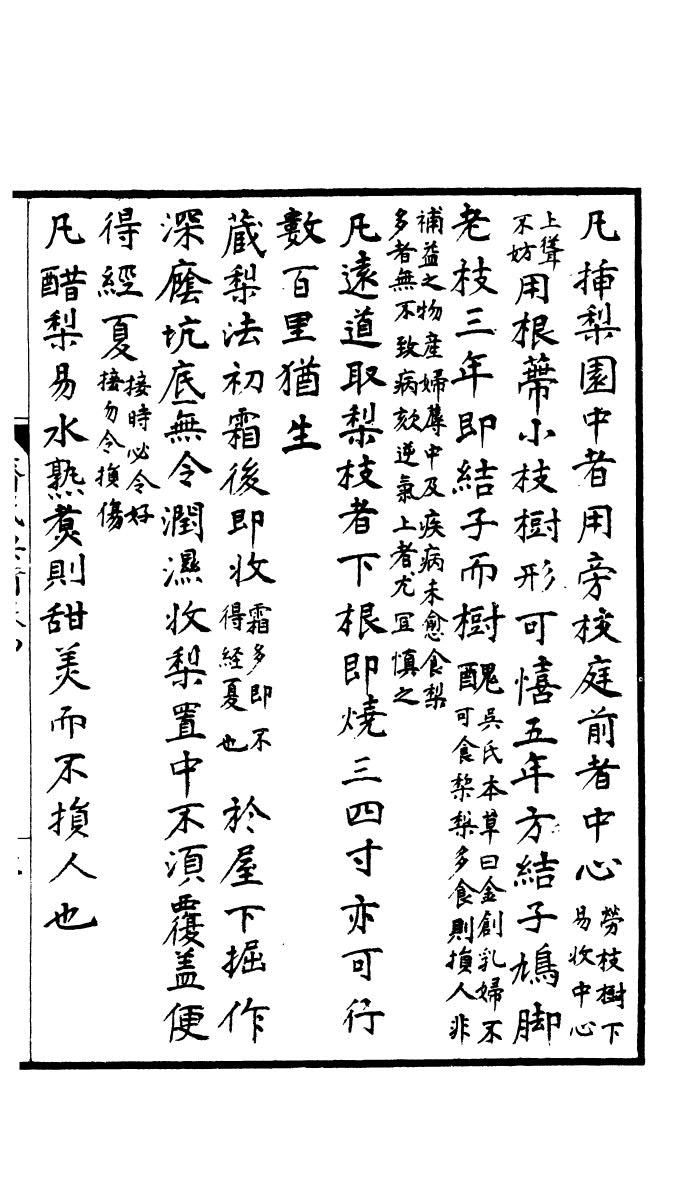 凡揷梨園中者用旁枝庭前者中心勞枝樹下易收中心
上聳不妨用根蔕小枝樹形可憘五年方結子鳩脚
老枝三年即結子而樹醜吳氏本草曰金創乳婦不可食棃梨多食則損人非
補益之物産婦蓐中及疾病未愈食梨多者無不致病欬逆氣上者尤宜慎之
凡遠道取梨枝者下根即燒三四寸亦可行
數百里猶生
藏梨法初霜後即收霜多即不得經夏也於屋下掘作
深廕坑底無令潤濕收梨置中不湏覆盖便
得經夏接時必令好接勿令損傷
凡醋梨易水熟煑則甜美而不損人也